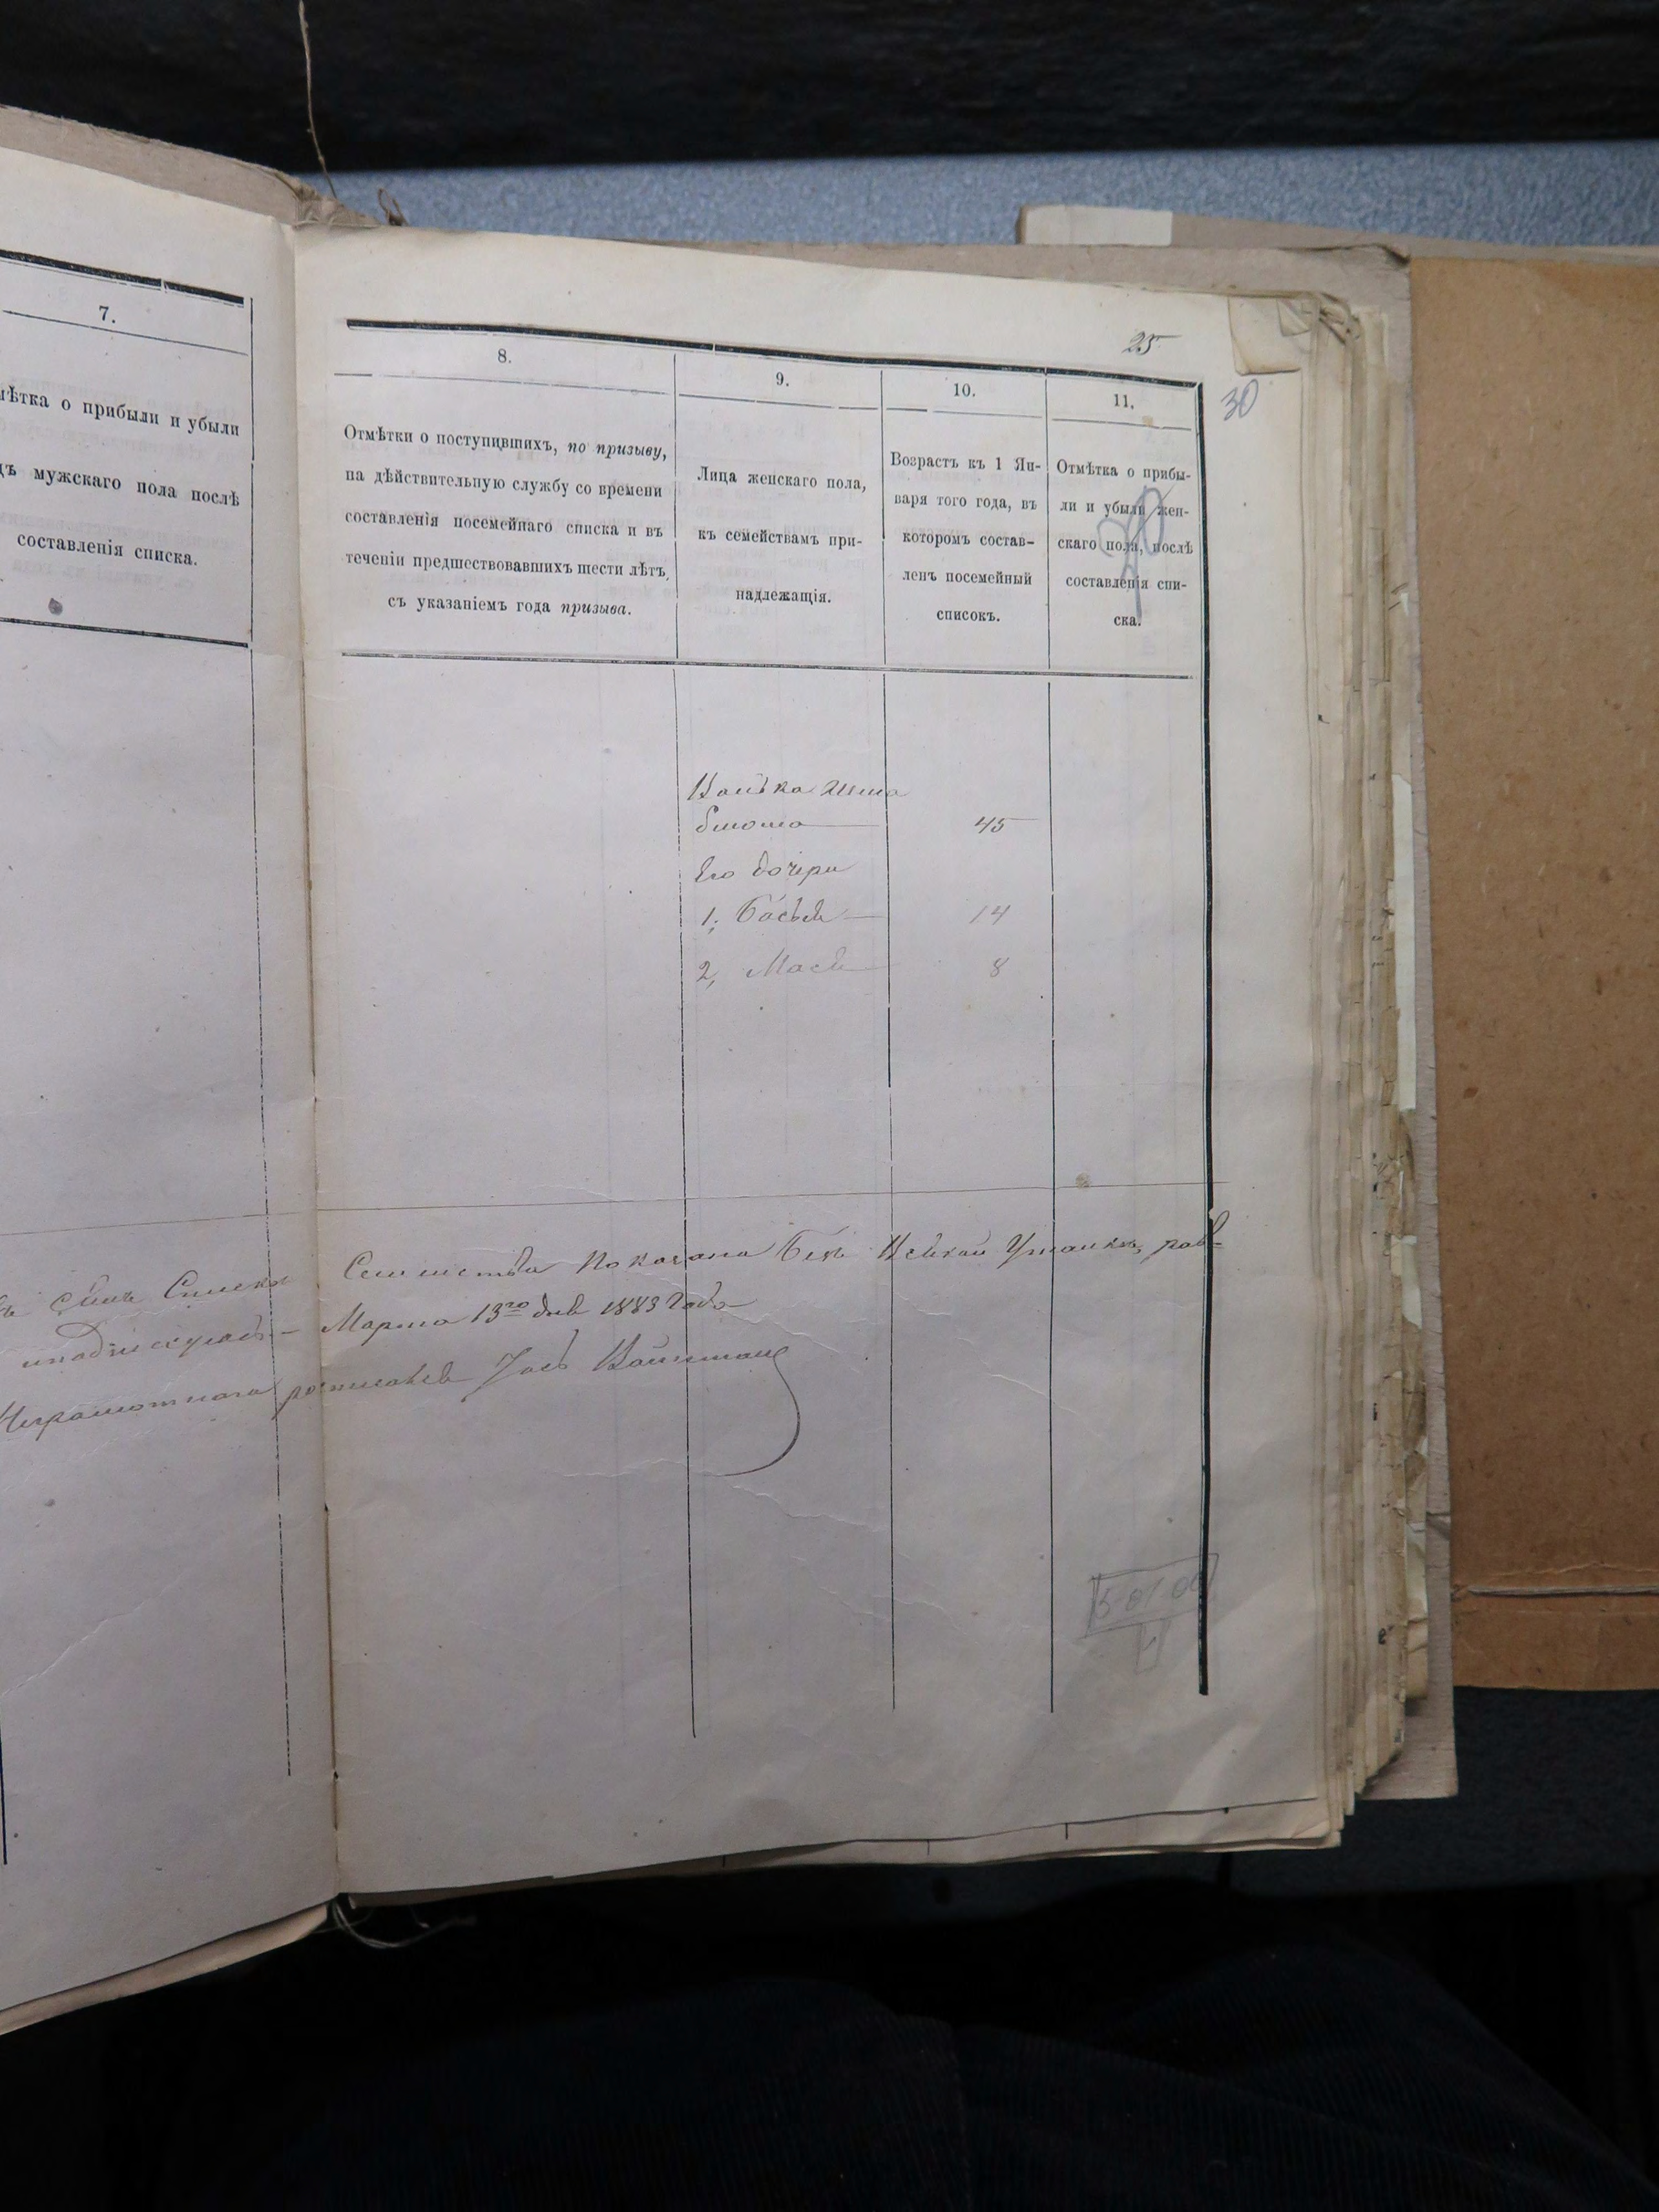 7.
мѣтка о прибыли и убыли
цъ мужскаго пола послѣ
составленія списка.
25
30
8.
Отмѣтки о поступившихъ, по призыву,
на дѣйствительную службу со времени
составленія посемейнаго списка и въ
теченіи предшествовавшихъ шести лѣтъ,
съ указаніемъ года призыва.
9.
Лица женскаго пола,
къ семействамъ при-
надлежащія.
10.
Возрастъ къ 1 Ян-
варя того года, въ
которомъ состав-
ленъ посемейный
списокъ.
11.
Отмѣтка о прибы-
ли и убыли жен-
скаго пола, послѣ
составленія спи-
ска.
45
Его дочери
1, Бася 14
2, Мася 8
Семейства показана безъ всякой утайки,
Марта 13го дня 1883 года
Неграмотнаго росписався